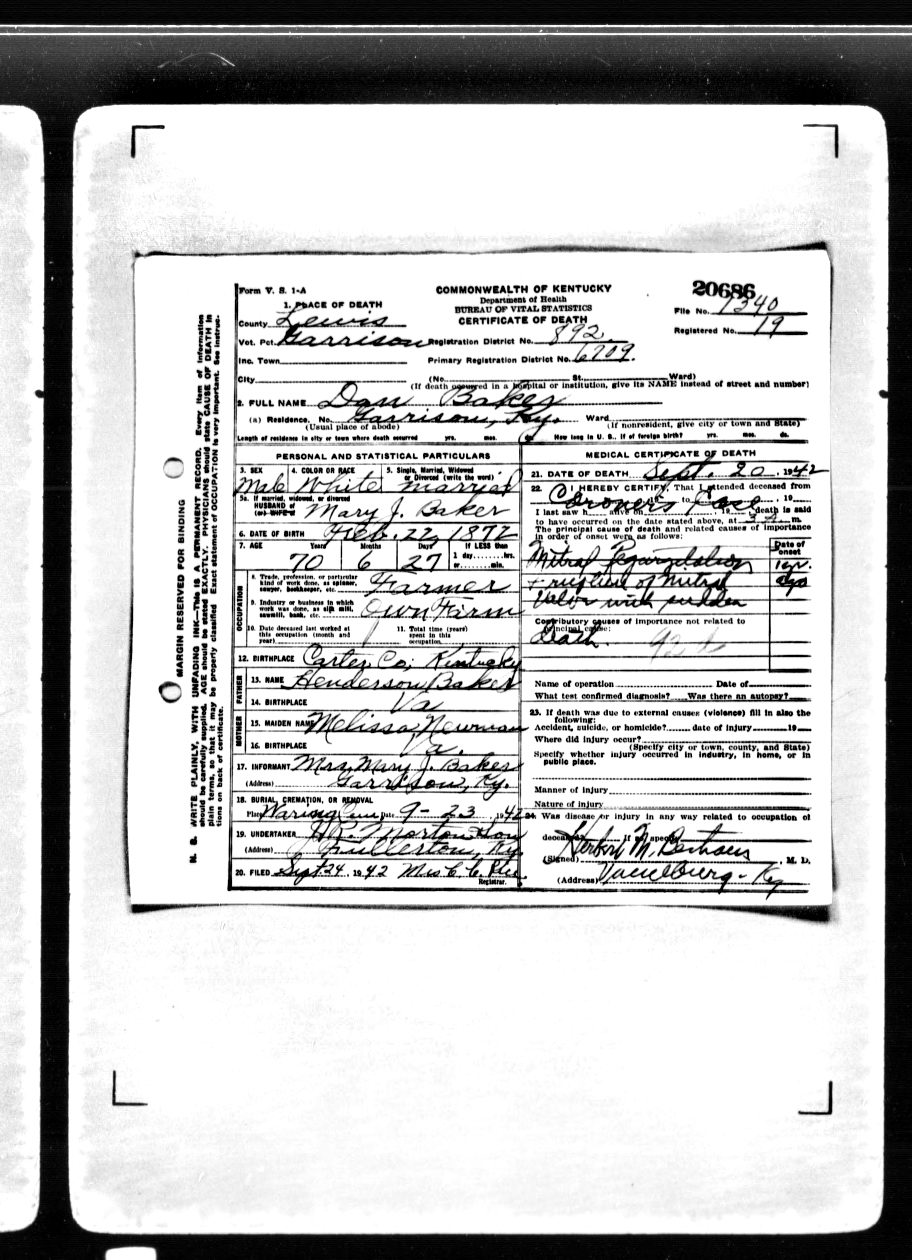 Form V. S. 1-A
COMMONWEALTH OF KENTUCKY
Department of Health
BUREAU OF VITAL STATISTICS
CERTIFICATE OF DEATH
20686
File No. 1340
Registered No. 19
1. PLACE OF DEATH
County Lewis
Vot. Pct. Garrison Registration District No. 892
Inc. Town Primary Registration District No. 6709.
City (No. St. Ward)
(If death occurred in a hospital or institution, give its NAME instead of street and number)
2. FULL NAME Dan Baker
(a) Residence. No. Garrison, Ky. Ward
(Usual place of abode) (If nonresident, give city or town and State)
Length of residence in city or town where death occurred yrs. mos. ds. How long in U. S., if of foreign birth? yrs. mos. ds.
PERSONAL AND STATISTICAL PARTICULARS
3. SEX 4. COLOR OR RACE 5. Single, Married, Widowed or Divorced (write the word)
Male White married
5a. If married, widowed, or divorced
HUSBAND of
(or) WIFE of Mary J. Baker
6. DATE OF BIRTH Feb. 22, 1872
7. AGE Years Months Days If LESS than
1 day hrs.
70 6 27 or min.
OCCUPATION
8. Trade, profession, or particular
kind of work done, as spinner,
sawyer, bookkeeper, etc. Farmer
9. Industry or business in which
work was done, as silk mill,
sawmill, bank, etc. Own Farm
10. Date deceased last worked at
this occupation (month and
year)
11. Total time (years)
spent in this
occupation
12. BIRTHPLACE Carter Co; Kentucky
FATHER
13. NAME Henderson Baker
14. BIRTHPLACE Va
MOTHER
15. MAIDEN NAME Melissa Newman
16. BIRTHPLACE Va.
17. INFORMANT Mrs Mary J. Baker
(Address) Garrison, Ky.
18. BURIAL, CREMATION, OR REMOVAL
Place Waring Cem Date 9-23, 1942
19. UNDERTAKER Morton Son
(Address) Fullerton, Ky.
20. FILED Sept 24, 1942 Mrs C. C.
Registrar.
MEDICAL CERTIFICATE OF DEATH
21. DATE OF DEATH Sept. 20, 1942
22. I HEREBY CERTIFY, That I attended deceased from
Coroners Case 19 to 19
I last saw h alive on 19 death is said
to have occurred on the date stated above, at 3 A. m.
The principal cause of death and related causes of importance
in order of onset were as follows:
Date of
onset
Mitral Regurgitation 1 yr.
+ rupture of mitral ago
valve with sudden
Contributory causes of importance not related to
principal cause:
death.
Name of operation Date of
What test confirmed diagnosis? Was there an autopsy?
23. If death was due to external causes (violence) fill in also the
following:
Accident, suicide, or homicide? date of injury 19
Where did injury occur?
(Specify city or town, county, and State)
Specify whether injury occurred in industry, in home, or in
public place.
Manner of injury
Nature of injury
24. Was disease or injury in any way related to occupation of
deceased? If so, specify
(Signed) Herbert M. M. D.
(Address) Vanceburg - Ky
MARGIN RESERVED FOR BINDING
N. B. WRITE PLAINLY, WITH UNFADING INK—This IS A PERMANENT RECORD. Every item of information
should be carefully supplied. AGE should be stated EXACTLY. PHYSICIANS should state CAUSE OF DEATH in
plain terms, so that it may be properly classified. Exact statement of OCCUPATION is very important. See instruc-
tions on back of certificate.